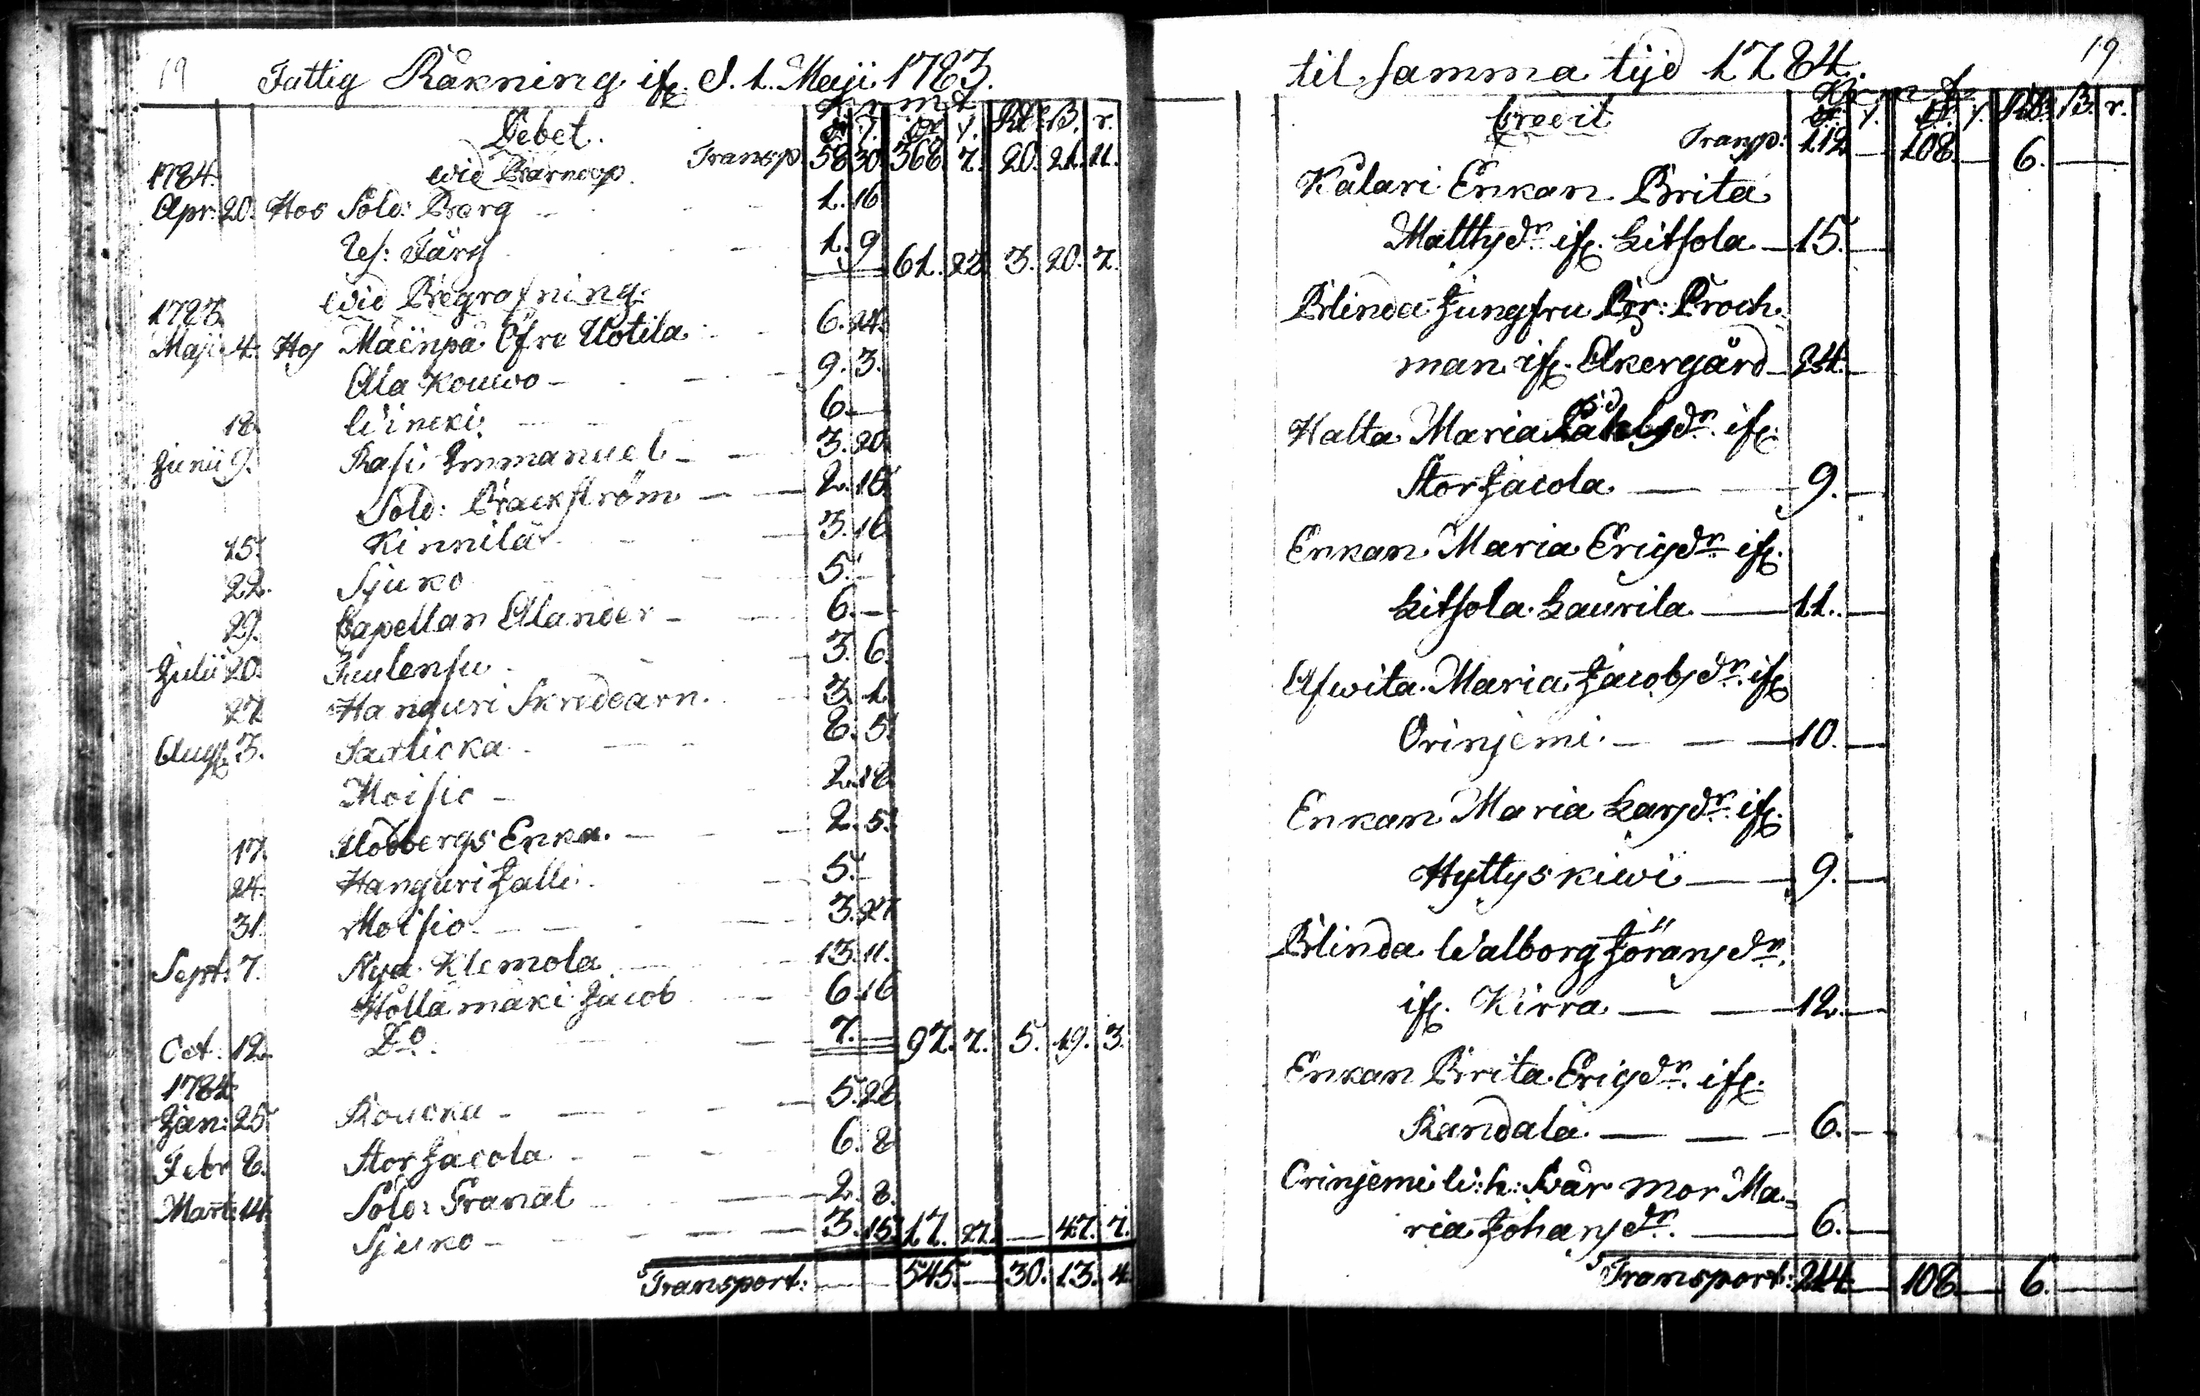 19 Fattig Räkning ifr. d. 1. Maji 1783.
Debet.
1784. wid Barndop. Transp. 58 30. 368. 7. 20. 21. 11.
Apr: 20. Hos Sold: Barg 1. 16
Färg 1. 9 61. 23 3. 20. 7.
wid Begrafning.
1783.
Maji 4. Hos Mäenpä Öfre Uotila 6. 24.
Ala Kouwo 9. 3.
18. Wineki 6.
Junii 9. Rasi Immanuel 3. 20
Sold: Brackström 2. 15
15. Kinnilä 3. 16
22. Sjuko 5.
29. Capellan Alander 6.
Julii 20. Tuulensu 3. 6.
27. Hanguri Skreddarn. 3. 1.
Aug. 3. 8. 5.
Moisio 2. 18
17. Enka. 2. 5.
24. Hanguri Jalli 5.
31. Moisio 3. 27
Sept: 7. Nya Klemola 13. 11.
Hållämäki Jacob 6 16
Oct. 12. Do. 7. 97. 7. 5. 19. 3.
1784.
Jan: 25. 5. 28
Febr 8. Stor Jacola 6. 8
Mart: 14. Sold: Granat 2. 8.
Sjuko 3. 15. 17. 27. 47. 7.
Transport: 545. 30. 13. 4.
til samma tijd 1784. 19
Credit
Transp: 112 108 6.
Kalari Enkan Brita
Mattsdr. ifr. Litsola 15.
Blinda Jungfru Bör: Broch-
man ifr. Åkergård 24.
Halta Maria ifr.
Stor Jacola 9.
Enkan Maria Erigsdr. ifr.
Litsola Laurila 11.
Afwita Maria Jacobsdr. ifr
Orinjemi. 10.
Enkan Maria Larsdr. ifr.
Hyttyskiwi 9.
Blinda Walborg Jöransdr.
ifr. Kirra 12.
Enkan Brita Erigsdr. ifr.
Randala 6.
Orinjemi W: h: Swär mor Ma-
ria Johansdr. 6.
Transport: 214. 108 6.